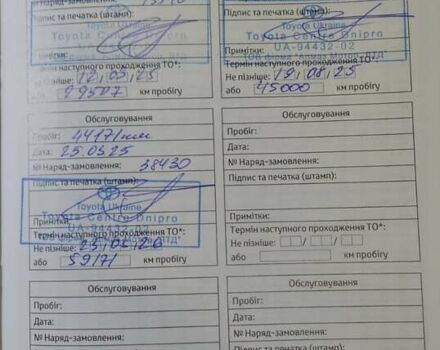 № Наряд-замовлення:
Підпис та печатка (штамп):
Toyota Ukraine
Toyota Centre Dnipro
Примітки:
Термін наступного проходження ТО*:
Не пізніше: 12 / 03 / 25
або 29507 км пробігу
Підпис та печатка (штамп):
Toyota Ukraine
Toyota Centre Dnipro
UA-94432-02
Примітки:
Термін наступного проходження ТО*:
Не пізніше: 19 / 08 / 25
або 45000 км пробігу
Обслуговування
Пробіг: 44171 км
Дата: 25 03 25
№ Наряд-замовлення: 38430
Підпис та печатка (штамп):
Toyota Ukraine
Toyota Centre Dnipro
UA-94432-02
Примітки:
Термін наступного проходження ТО*:
Не пізніше: 25 / 03 / 26
або 59171 км пробігу
Обслуговування
Пробіг:
Дата:
№ Наряд-замовлення:
Підпис та печатка (штамп):
Примітки:
Термін наступного проходження ТО*:
Не пізніше: / /
або км пробігу
Обслуговування
Пробіг:
Дата:
№ Наряд-замовлення:
Обслуговування
Пробіг:
Дата:
№ Наряд-замовлення: